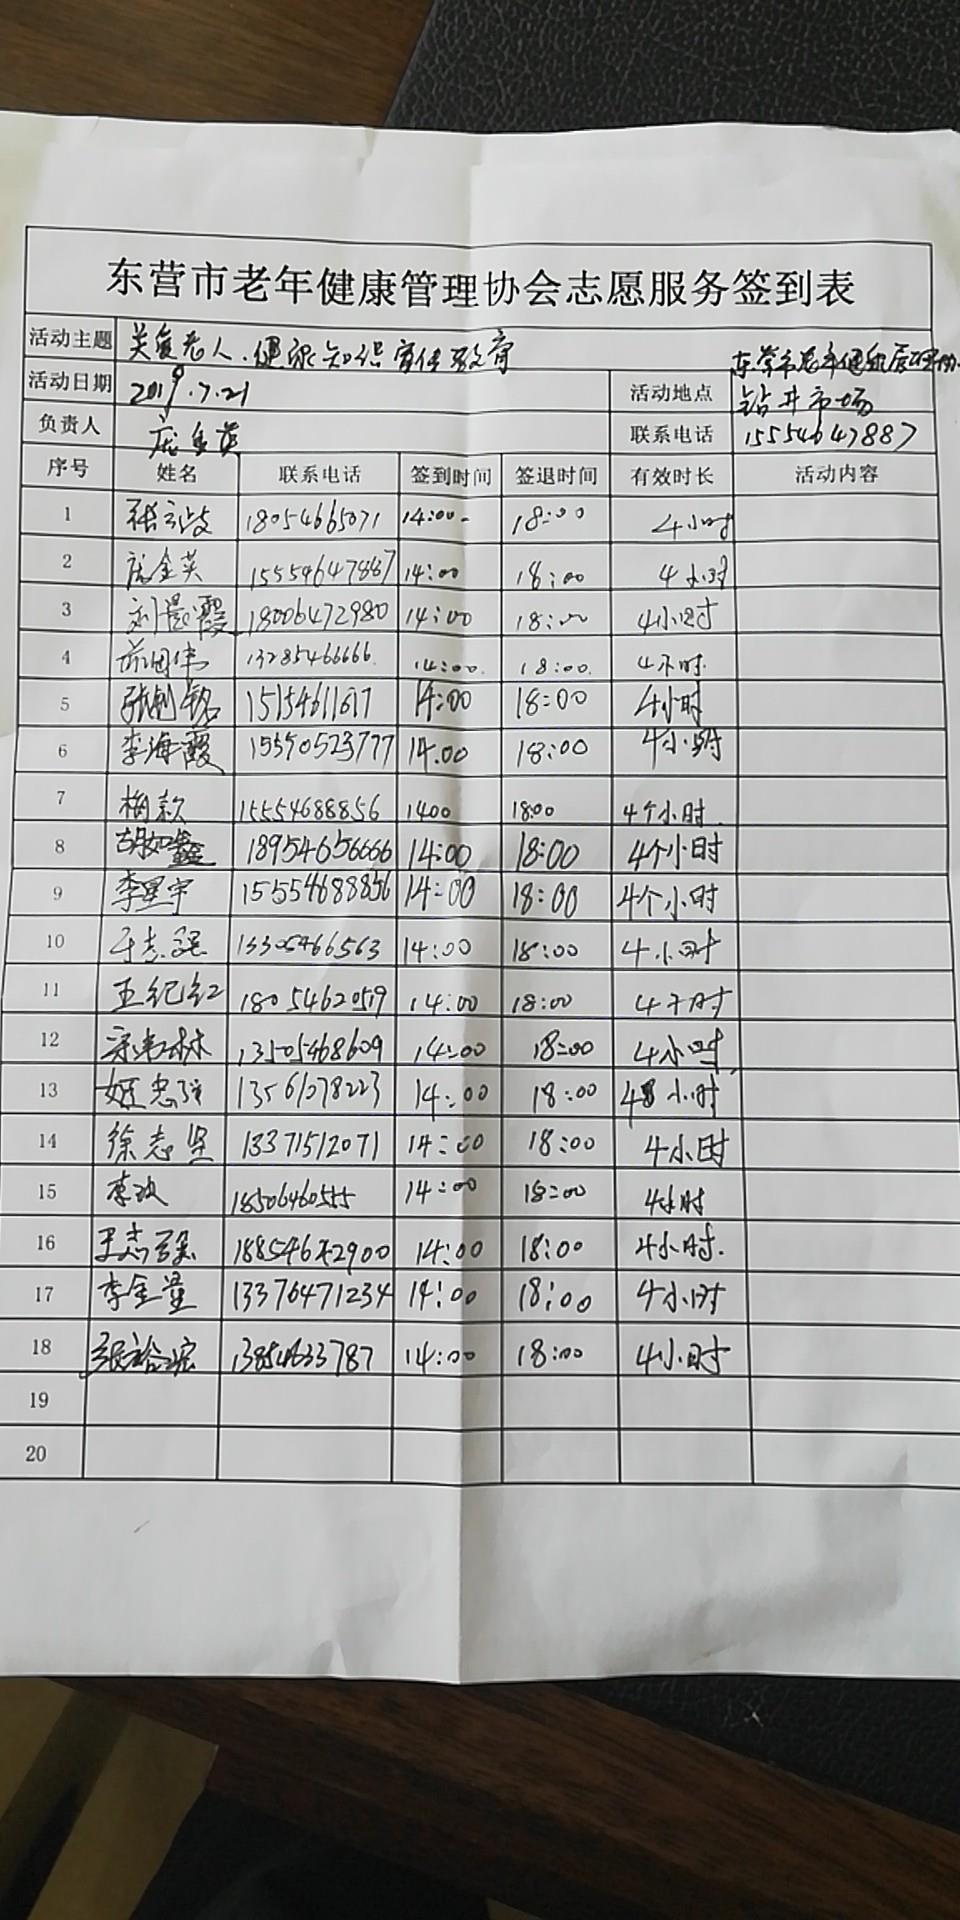 东营市老年健康管理协会志愿服务签到表
活动主题 关爱老人.健康知识宣传教育
东营市老年健康管理协
活动日期 2019.7.21 活动地点 钻井市场
负责人 庞金英 联系电话 15554647887
序号 姓名 联系电话 签到时间 签退时间 有效时长 活动内容
1 18054665071 14:00 18:00 4小时
2 庞金英 15554647887 14:00 18:00 4小时
3 刘晨霞 18006472980 14:00 18:00 4小时
4 13285466666 14:00 18:00 4小时
5 15154611617 14:00 18:00 4小时
6 李海霞 15570523777 14.00 18:00 4小时
7 梅款 15554688856 1400 1800 4个小时
8 胡如鑫 18954656666 14:00 18:00 4个小时
9 李星宇 15554688856 14:00 18:00 4个小时
10 于志强 13305466563 14:00 18:00 4小时
11 王纪红 18054620519 14:00 18:00 4小时
12 13505468609 14:00 18:00 4小时
13 13561078223 14:00 18:00 4小时
14 徐志坚 13371512071 14:00 18:00 4小时
15 18506460555 14:00 18:00 4小时
16 王志强 14:00 18:00 4小时.
17 李金量 13376471234 14:00 18:00 4小时
18 13854633787 14:00 18:00 4小时
19
20